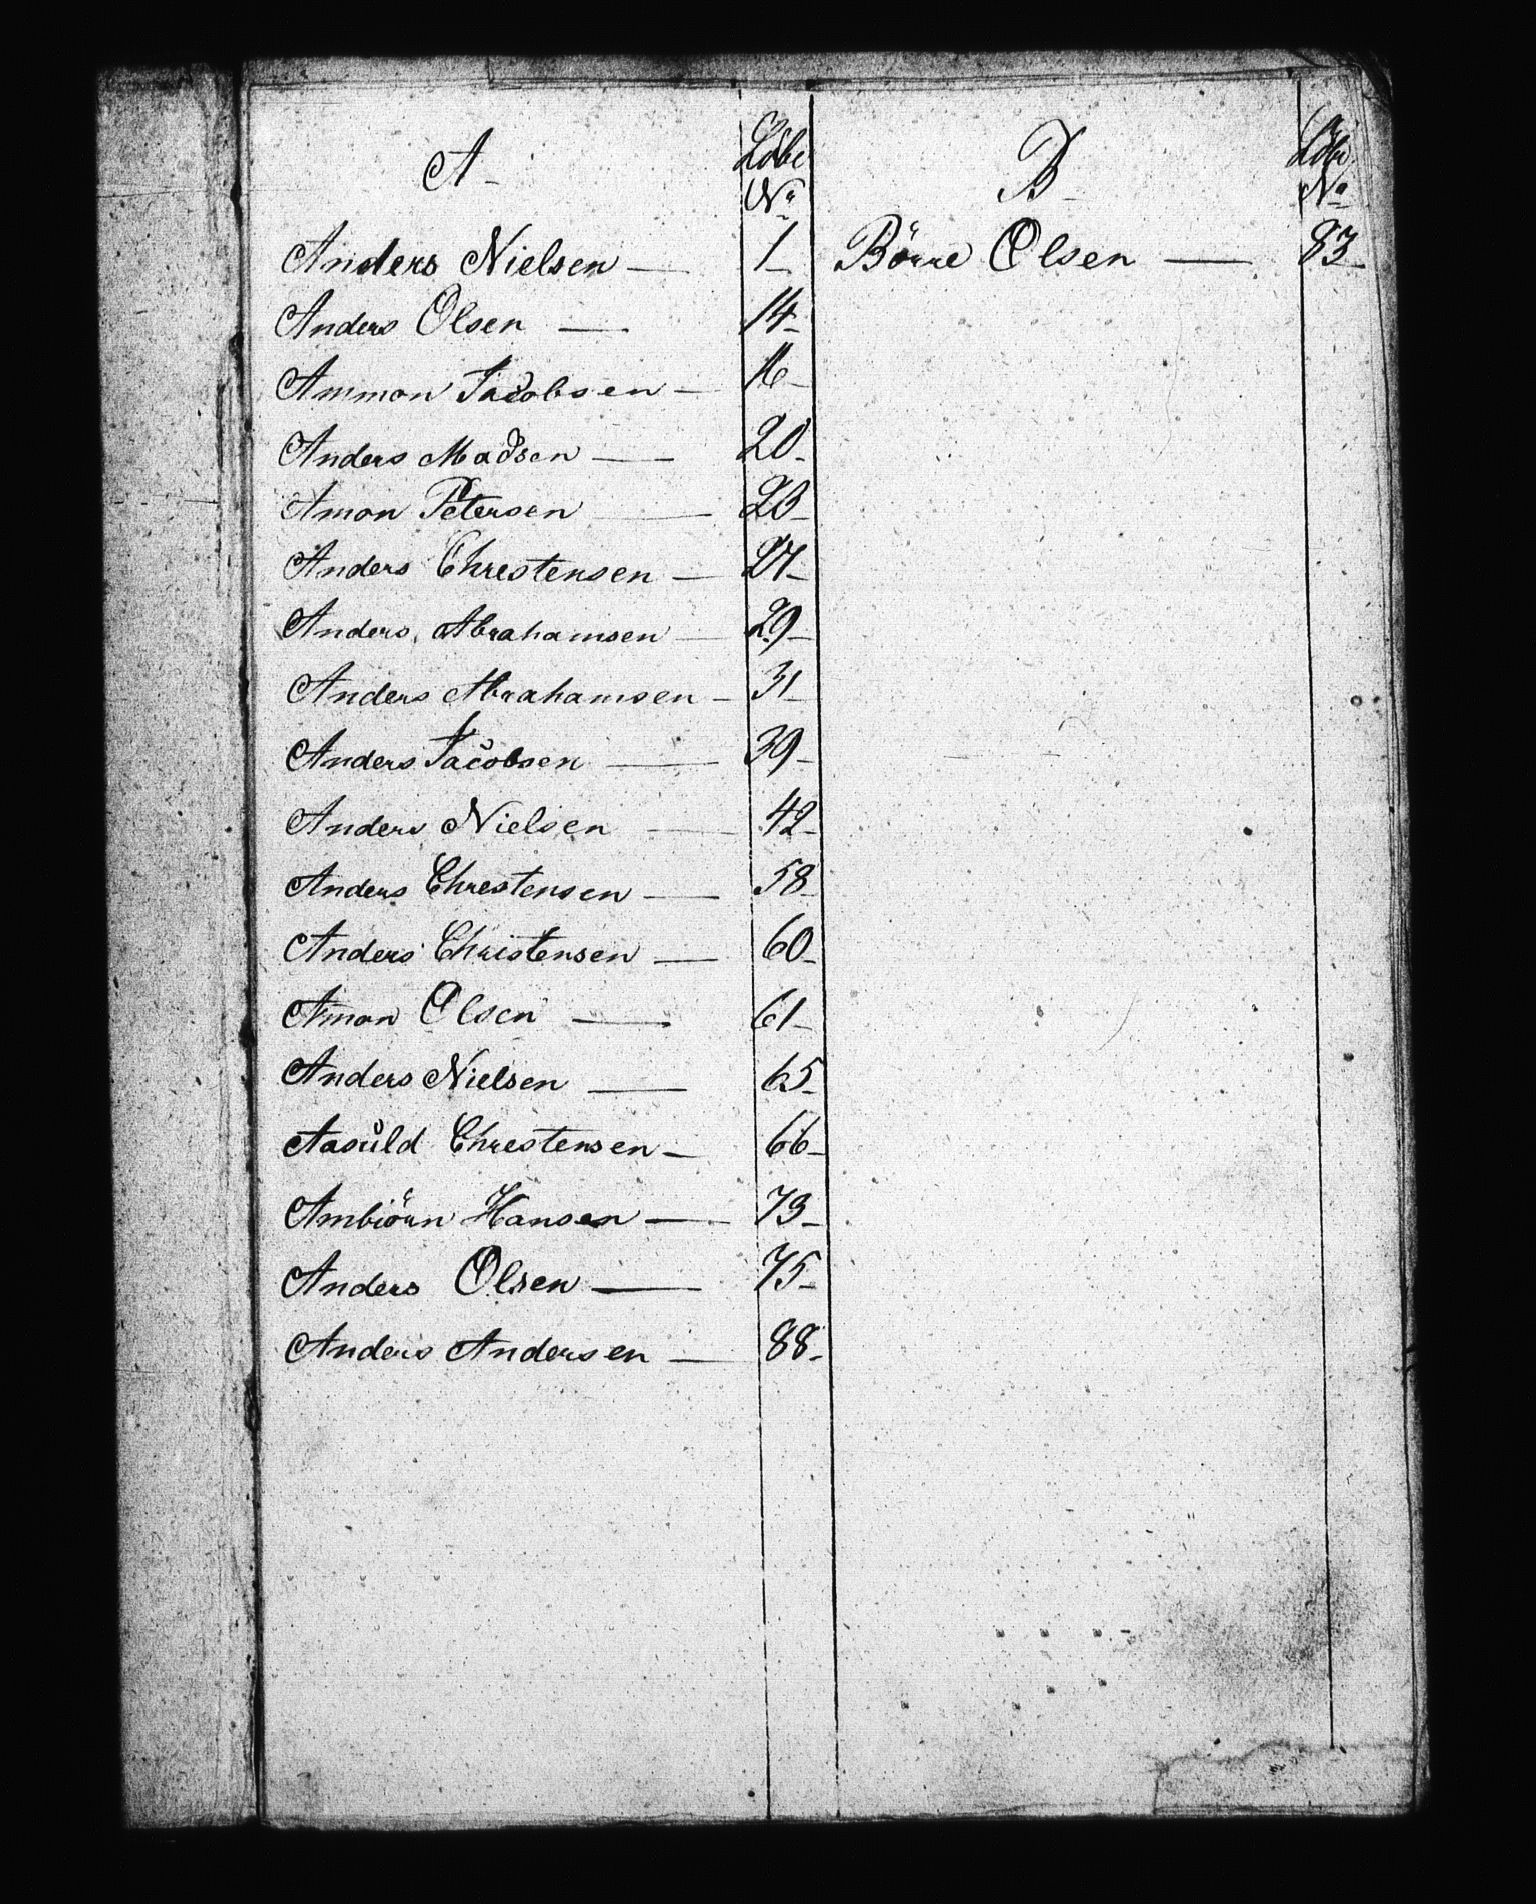 A
Löbe
No
Anders Nielsen — 1
Anders Olsen — 14
Ammon Jacobsen — 16
Anders Madsen — 20
Amon Petersen — 23
Anders Chrestensen — 27
Anders Abrahamsen — 29
Anders Abrahamsen — 31
Anders Jacobsen — 39
Anders Nielsen — 42
Anders Chrestensen — 58
Anders Christensen — 60
Amon Olsen — 61
Anders Nielsen — 65
Aasuld Chrestensen — 66
Ambiörn Hansen — 73
Anders Olsen — 75
Anders Andersen — 88
B
Löbe
No
Börre Olsen — 83